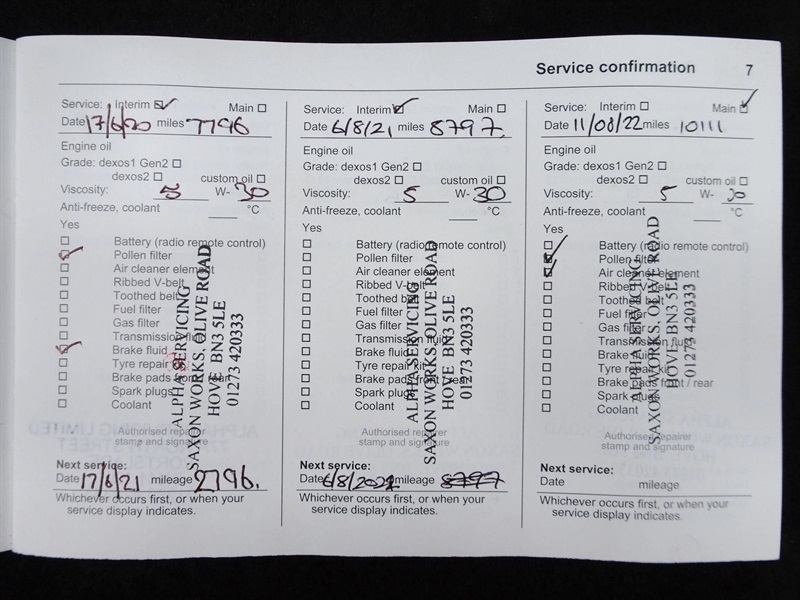 Service confirmation 7
Service: Interim ☑ Main ☐
Date 17/6/20 miles 7796
Engine oil
Grade: dexos1 Gen2 ☐
dexos2 ☐ custom oil ☐
Viscosity: 5 W- 30
Anti-freeze, coolant ____ °C
Yes
☐ Battery (radio remote control)
☑ Pollen filter
☐ Air cleaner element
☐ Ribbed V-belt
☐ Toothed belt
☐ Fuel filter
☐ Gas filter
☐ Transmission fluid
☑ Brake fluid
☐ Tyre repair kit
☐ Brake pads front / rear
☐ Spark plugs
☐ Coolant
Authorised repairer
stamp and signature
ALPHA SERVICING
SAXON WORKS, OLIVE ROAD
HOVE BN3 5LE
01273 420333
Next service:
Date 17/6/21 mileage 2796.
Whichever occurs first, or when your
service display indicates.
Service: Interim ☑ Main ☐
Date 6/8/21 miles 8797.
Engine oil
Grade: dexos1 Gen2 ☐
dexos2 ☐ custom oil ☐
Viscosity: 5 W- 30
Anti-freeze, coolant ____ °C
Yes
☐ Battery (radio remote control)
☐ Pollen filter
☐ Air cleaner element
☐ Ribbed V-belt
☐ Toothed belt
☐ Fuel filter
☐ Gas filter
☐ Transmission fluid
☐ Brake fluid
☐ Tyre repair kit
☐ Brake pads front / rear
☐ Spark plugs
☐ Coolant
Authorised repairer
stamp and signature
ALPHA SERVICING
SAXON WORKS, OLIVE ROAD
HOVE BN3 5LE
01273 420333
Next service:
Date 6/8/2022 mileage 8797
Whichever occurs first, or when your
service display indicates.
Service: Interim ☐ Main ☑
Date 11/08/22 miles 10111
Engine oil
Grade: dexos1 Gen2 ☐
dexos2 ☐ custom oil ☐
Viscosity: 5 W- 30
Anti-freeze, coolant ____ °C
Yes
☐ Battery (radio remote control)
☑ Pollen filter
☑ Air cleaner element
☐ Ribbed V-belt
☐ Toothed belt
☐ Fuel filter
☐ Gas filter
☐ Transmission fluid
☐ Brake fluid
☐ Tyre repair kit
☐ Brake pads front / rear
☐ Spark plugs
☐ Coolant
Authorised repairer
stamp and signature
ALPHA SERVICING
SAXON WORKS, OLIVE ROAD
HOVE BN3 5LE
01273 420333
Next service:
Date mileage
Whichever occurs first, or when your
service display indicates.